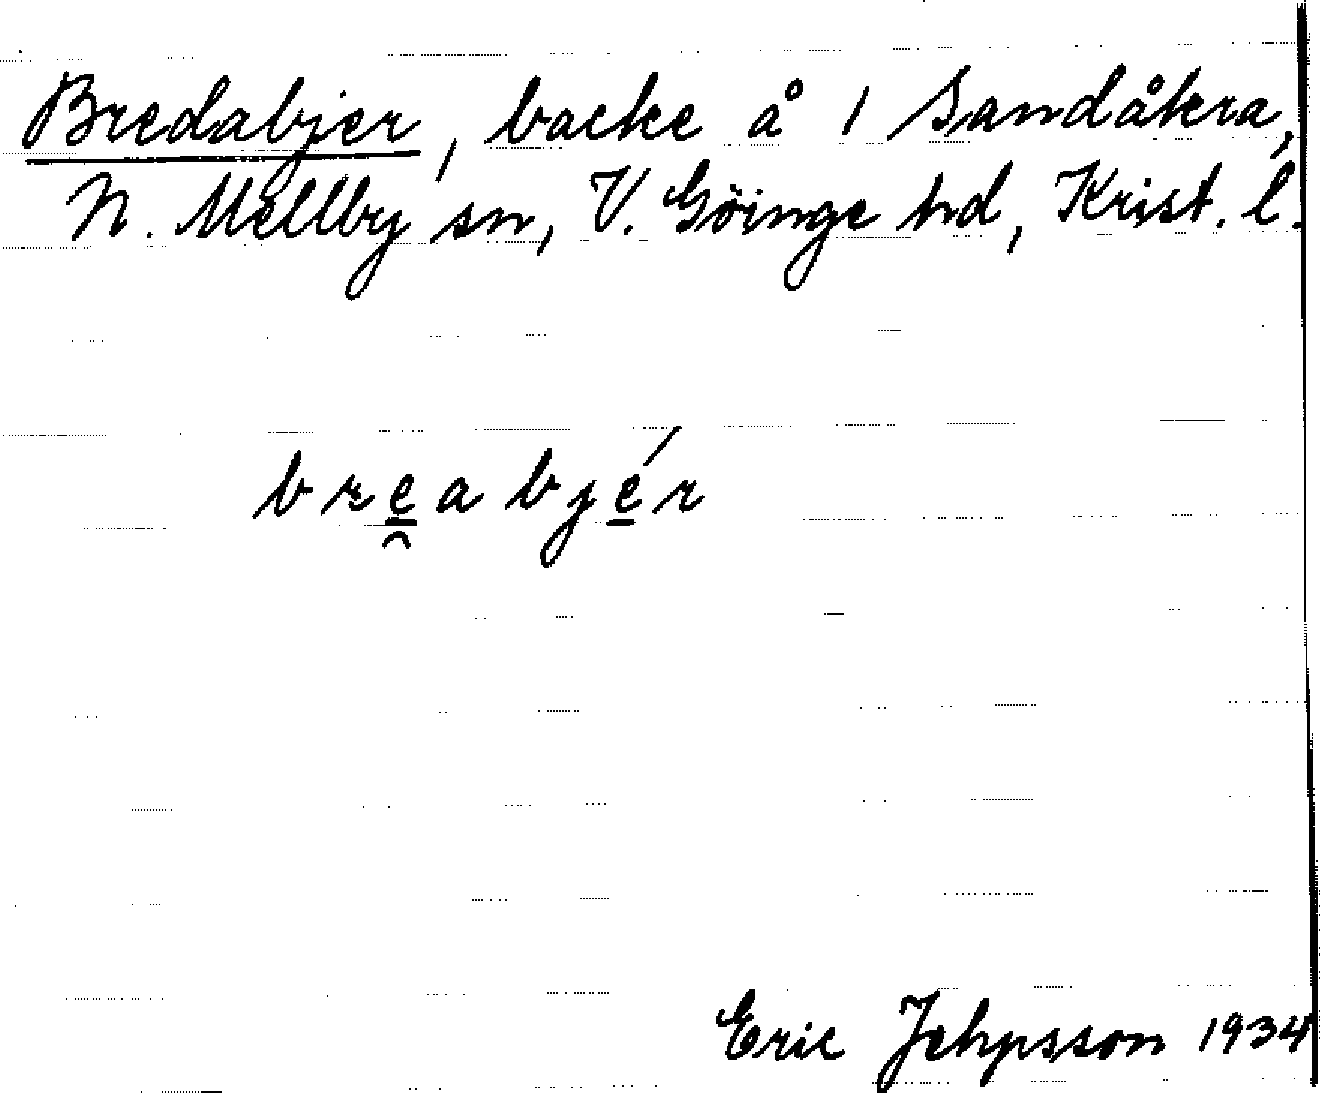 Bredabjer, backe å 1 Sandåkra,
N. Mellby sn, V. Göinge hd, Krist. l.
bre̲̯abjé̲r
Eric Jehpsson 1934